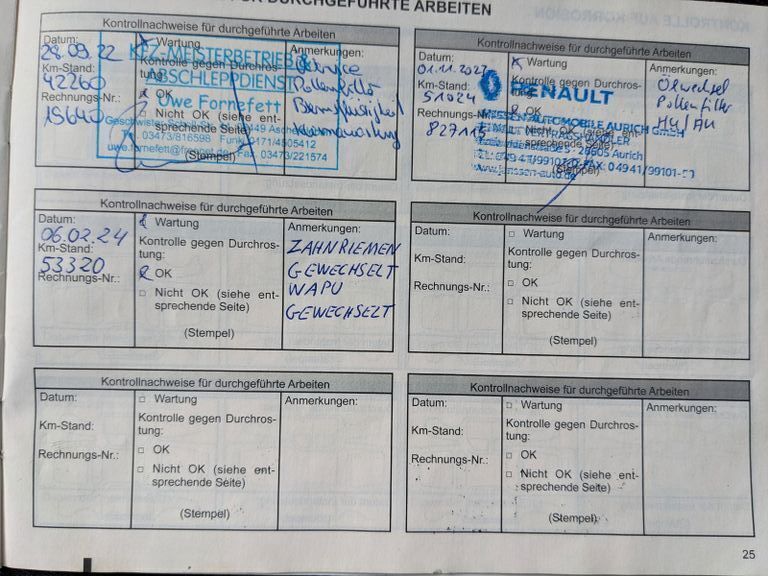 DURCHGEFÜHRTE ARBEITEN
Kontrollnachweise für durchgeführte Arbeiten
Datum:
28.09.22
Km-Stand:
42260
Rechnungs-Nr.:
Wartung
Kontrolle gegen Durchros-
tung:
OK
Nicht OK (siehe ent-
sprechende Seite)
(Stempel)
Anmerkungen:
Service
Pollenfilter
Bremsflüssigkeit
Klimawartung
KFZ-MEISTERBETRIEB &
ABSCHLEPPDIENST
Uwe Fornefett
03473/816598 Funk 0171/4505412
Fax 03473/221574
Kontrollnachweise für durchgeführte Arbeiten
Datum:
01.11.2023
Km-Stand:
51024
Rechnungs-Nr.:
827115
Wartung
Kontrolle gegen Durchros-
tung:
OK
Nicht OK (siehe ent-
sprechende Seite)
(Stempel)
Anmerkungen:
Ölwechsel
Pollenfilter
HU/AU
RENAULT
JANSSEN AUTOMOBILE AURICH GMBH
RENAULT VERTRAGSHÄNDLER
26605 Aurich
www.janssen-auto.de
Kontrollnachweise für durchgeführte Arbeiten
Datum:
06.02.24
Km-Stand:
53320
Rechnungs-Nr.:
Wartung
Kontrolle gegen Durchros-
tung:
OK
□ Nicht OK (siehe ent-
sprechende Seite)
(Stempel)
Anmerkungen:
ZAHNRIEMEN
GEWECHSELT
WAPU
GEWECHSELT
Kontrollnachweise für durchgeführte Arbeiten
Datum:
Km-Stand:
Rechnungs-Nr.:
□ Wartung
Kontrolle gegen Durchros-
tung:
□ OK
□ Nicht OK (siehe ent-
sprechende Seite)
(Stempel)
Anmerkungen:
Kontrollnachweise für durchgeführte Arbeiten
Datum:
Km-Stand:
Rechnungs-Nr.:
□ Wartung
Kontrolle gegen Durchros-
tung:
□ OK
□ Nicht OK (siehe ent-
sprechende Seite)
(Stempel)
Anmerkungen:
Kontrollnachweise für durchgeführte Arbeiten
Datum:
Km-Stand:
Rechnungs-Nr.:
□ Wartung
Kontrolle gegen Durchros-
tung:
□ OK
□ Nicht OK (siehe ent-
sprechende Seite)
(Stempel)
Anmerkungen:
25